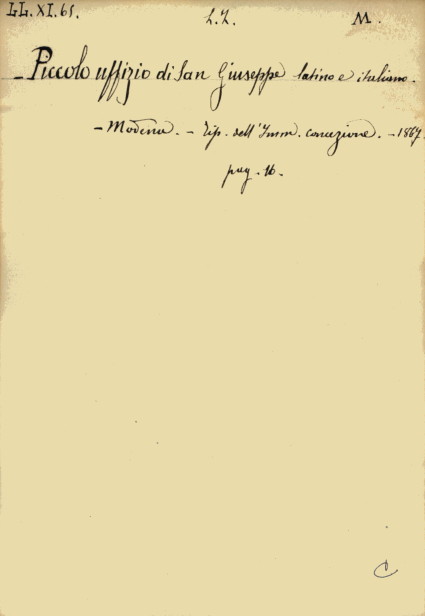 LL. XI. 65. L.I. M.
- Piccolo uffizio di San Giuseppe latino e italiano.
- Modena. - Tip. dell'Imm. concezione. - 1867.
pag. 16.
C